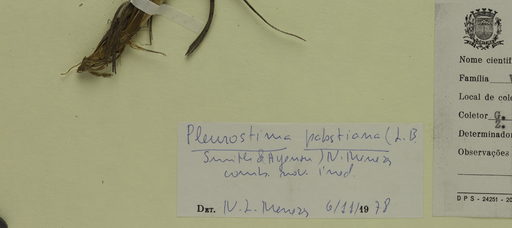 Pleurostima pabstiana (L. B
Smith & Ayensu) N. Menezes
comb. nov. ined.
DET. N. L. Menezes 6/11/1978
Nome científ
Família V
Local de cole
Coletor G.
Determinador
Observações
D P S - 24251 - 20